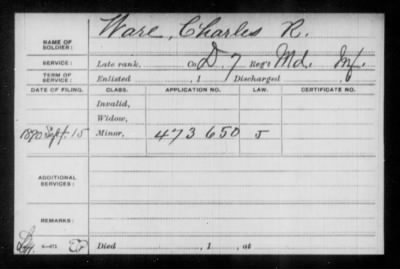 NAME OF SOLDIER: Ware, Charles R.
SERVICE: Late rank, Co. D, 7 Reg't Md. Inf.
TERM OF SERVICE: Enlisted , 1 Discharged , 1
DATE OF FILING. CLASS. APPLICATION NO. LAW. CERTIFICATE NO.
Invalid,
Widow,
1890 Sept. 15 Minor, 473650 J
ADDITIONAL SERVICES:
REMARKS:
Died , 1 , at